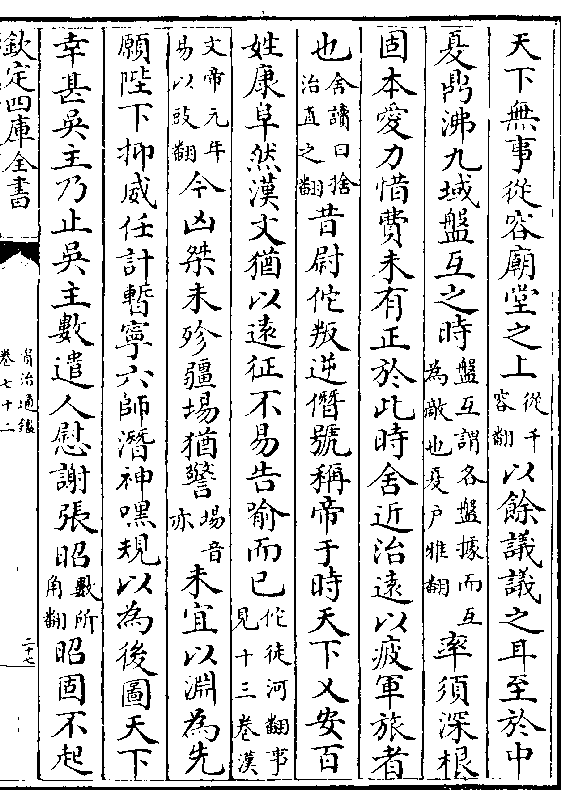 天下無事從容廟堂之上從千容翻以餘議議之耳至於中
夏鼎沸九域盤互之時盤互謂各盤據而互為敵也夏户雅翻率須深根
固本愛力惜費未有正於此時舍近治遠以疲軍旅者
也舍讀曰捨治直之翻昔尉佗叛逆僭號稱帝于時天下乂安百
姓康阜然漢文猶以遠征不易告喻而已佗徒河翻事見十三卷漢
文帝元年易以豉翻今凶桀未殄疆埸猶警埸音亦未宜以淵為先
願陛下抑威任計暫寧六師潛神嘿規以為後圖天下
幸甚吳主乃止吳主數遣人慰謝張昭數所角翻昭固不起
欽定四庫全書
資治通鑑
卷七十二
二十七